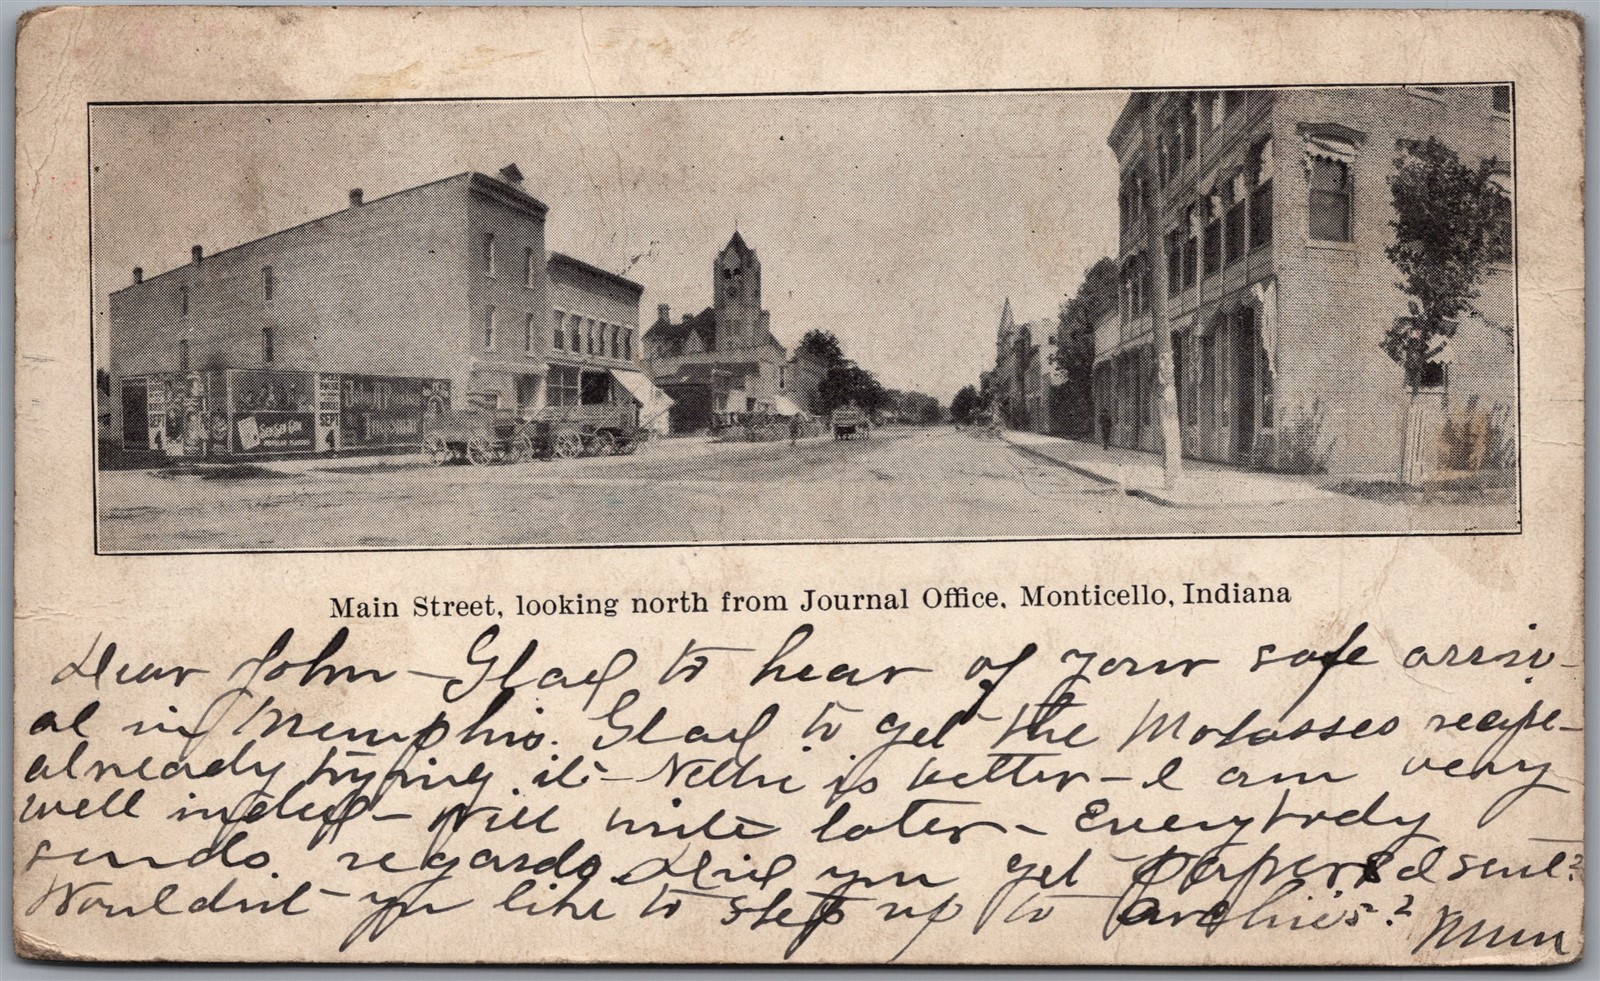 SEN-SEN GUM
SEPT
4
Main Street, looking north from Journal Office, Monticello, Indiana
Dear John – Glad to hear of your safe arriv-
al in Memphis. Glad to get the Molasses recipe –
already trying it – Nellie is better – I am very
well indeed – Will write later – Everybody
sends regards Did you get papers I sent?
Wouldn't you like to step up to Archie's?